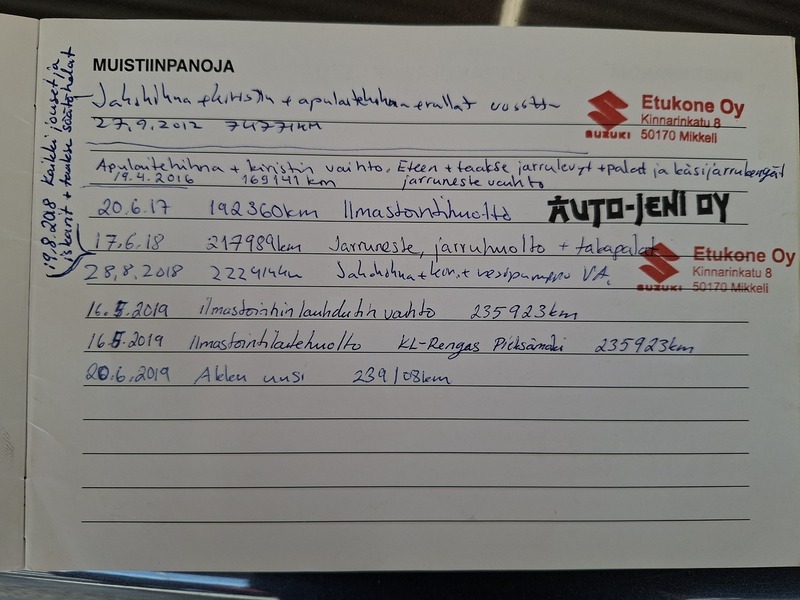 MUISTIINPANOJA
Jakohihna + kiristin + apulaitehihna + rullat
27.9.2012 74771km
Etukone Oy
Kinnarinkatu 8
SUZUKI 50170 Mikkeli
Apulaitehihna + kiristin vaihto. Eteen + taakse jarrulevyt + palat ja käsijarrukengät
19.4.2016 169141 km jarruneste vaihto
20.6.17 192360km Ilmastointihuolto AUTO-JENI OY
17.6.18 217989km Jarruneste, jarruhuolto + takapalat
Etukone Oy
Kinnarinkatu 8
SUZUKI 50170 Mikkeli
28.8.2018 222414km Jakohihna + kir. + vesipumppu VA.
16.5.2019 ilmastoinnin lauhdutin vaihto 235923km
16.5.2019 Ilmastointilaitehuolto KL-Rengas Pieksämäki 235923km
20.6.2019 Akku uusi 239108km
19.8.2018 Kaikki jouset ja
iskarit + taakse säätöhelat